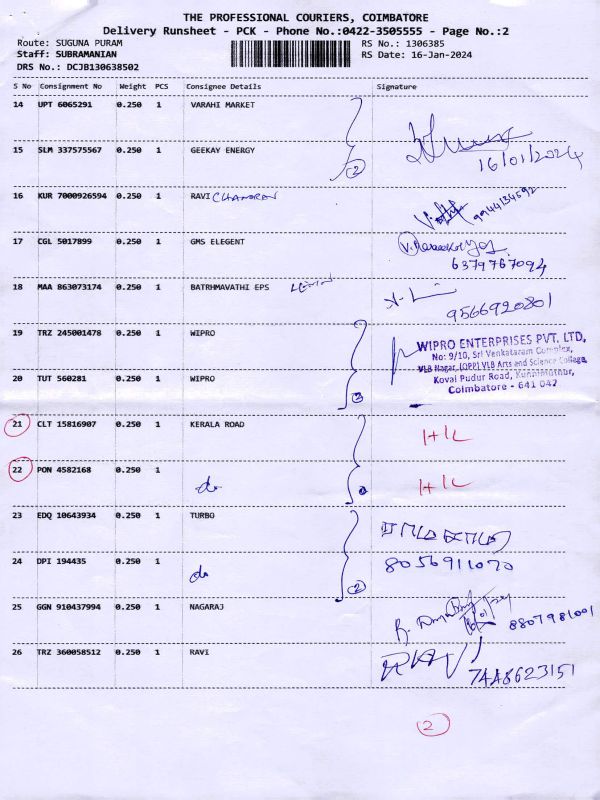 THE PROFESSIONAL COURIERS, COIMBATORE
Delivery Runsheet - PCK - Phone No.:0422-3505555 - Page No.:2
Route: SUGUNA PURAM RS No.: 1306385
Staff: SUBRAMANIAN RS Date: 16-Jan-2024
DRS No.: DCJB130638502
S No Consignment No Weight PCS Consignee Details Signature
14 UPT 6065291 0.250 1 VARAHI MARKET
15 SLM 337575567 0.250 1 GEEKAY ENERGY 2 16/01/2024
16 KUR 7000926594 0.250 1 RAVI CHANDRAN 9944134592
17 CGL 5017899 0.250 1 GMS ELEGENT
6379767094
18 MAA 863073174 0.250 1 BATRHMAVATHI EPS
9566920801
19 TRZ 245001478 0.250 1 WIPRO
WIPRO ENTERPRISES PVT. LTD,
No: 9/10, Sri Venkataram Complex,
VLB Nagar, (OPP) VLB Arts and Science College,
Kovai Pudur Road, Kuniamuthur,
Coimbatore - 641 042
20 TUT 560281 0.250 1 WIPRO
21 CLT 15816907 0.250 1 KERALA ROAD
22 PON 4582168 0.250 1 do
23 EDQ 10643934 0.250 1 TURBO
24 DPI 194435 0.250 1 do 2 8056911070
25 GGN 910437994 0.250 1 NAGARAJ 8807981001
26 TRZ 360058512 0.250 1 RAVI RAVI
7448623151
2